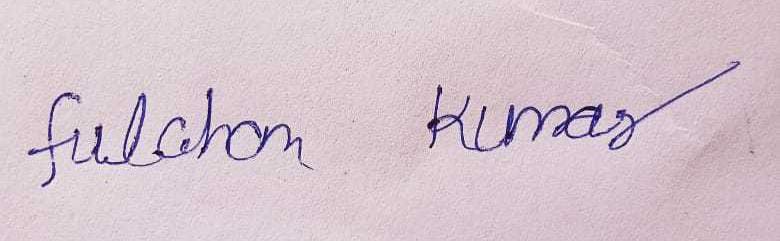 fulchan Kumar